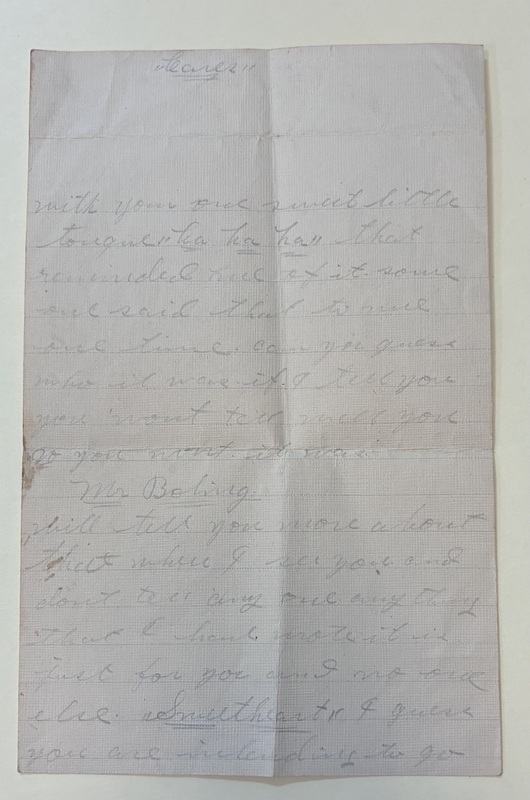 with your one sweet little
tongue "ha ha ha" that
reminded me of it. some
one said that to me
one time. can you guess
who it was. if I tell you
you wont tell will you
no you wont. it was
Mr Boling
will tell you more about
that when I see you and
dont tell any one any thing
that I have wrote it is
just for you and no one
else. "Sweetheart" I guess
you are intending to go